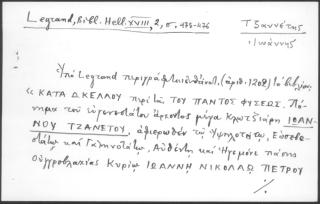 Legrand, Bibl. Hell. XVIII, 2, σ. 475-476
Τζαννέτης
Ἰωάννης
Ὑπὸ Legrand περιγράφεται (ἀριθ. 1209) τὸ βιβλίον
«ΚΑΤΑ ΟΚΕΛΛΟΥ περὶ τῆς ΤΟΥ ΠΑΝΤΟΣ ΦΥΣΕΩΣ. Πό-
νημα τοῦ εὐγενεστάτου ἄρχοντος μεγάλου Κλουτζιάρη ΙΩΑΝ-
ΝΟΥ ΤΖΑΝΕΤΟΥ, ἀφιερωθὲν τῷ Ὑψηλοτάτῳ, Εὐσεβε-
στάτῳ καὶ Γαληνοτάτῳ, Αὐθέντῃ καὶ Ἡγεμόνι πάσης
Οὑγγροβλαχίας Κυρίῳ ΙΩΑΝΝΗ ΝΙΚΟΛΑΩ ΠΕΤΡΟΥ